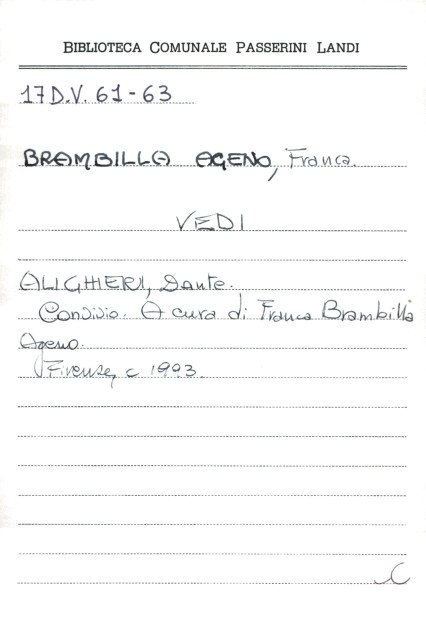 BIBLIOTECA COMUNALE PASSERINI LANDI
17 D.V. 61-63
BRAMBILLA AGENO, Franca.
VEDI
ALIGHIERI, Dante.
Convivio. A cura di Franca Brambilla
Ageno.
Firenze, c 1993.